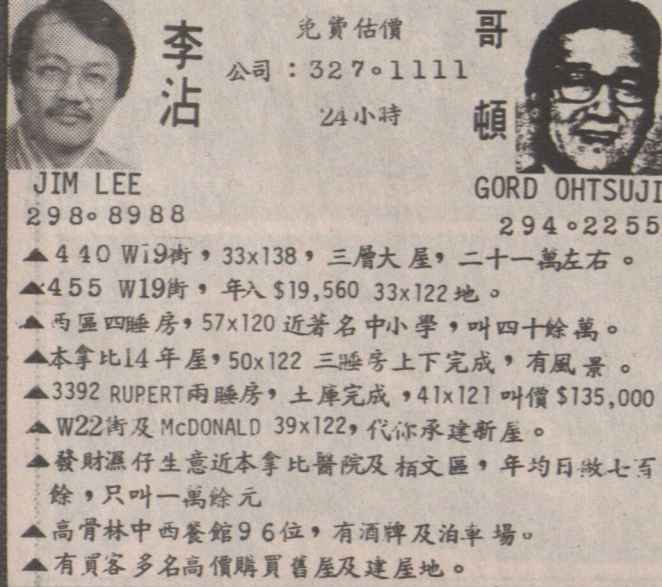 李沾
免費估價
公司：327。1111
24小時
哥頓
JIM LEE
298。8988
GORD OHTSUJI
294。2255
▲440 W19街，33x138，三層大屋，二十一萬左右。
▲455 W19街，年入 $19,560 33x122 地。
▲西區四睡房，57x120 近著名中小學，叫四十餘萬。
▲本拿比14年屋，50x122 三睡房上下完成，有風景。
▲3392 RUPERT兩睡房，土庫完成，41x121 叫價 $135,000
▲W22街及 McDONALD 39x122，代你承建新屋。
▲發財濕仔生意近本拿比醫院及柏文區，年均日做七百
餘，只叫一萬餘元
▲高骨林中西餐館96位，有酒牌及泊車場。
▲有買客多名高價購買舊屋及建屋地。